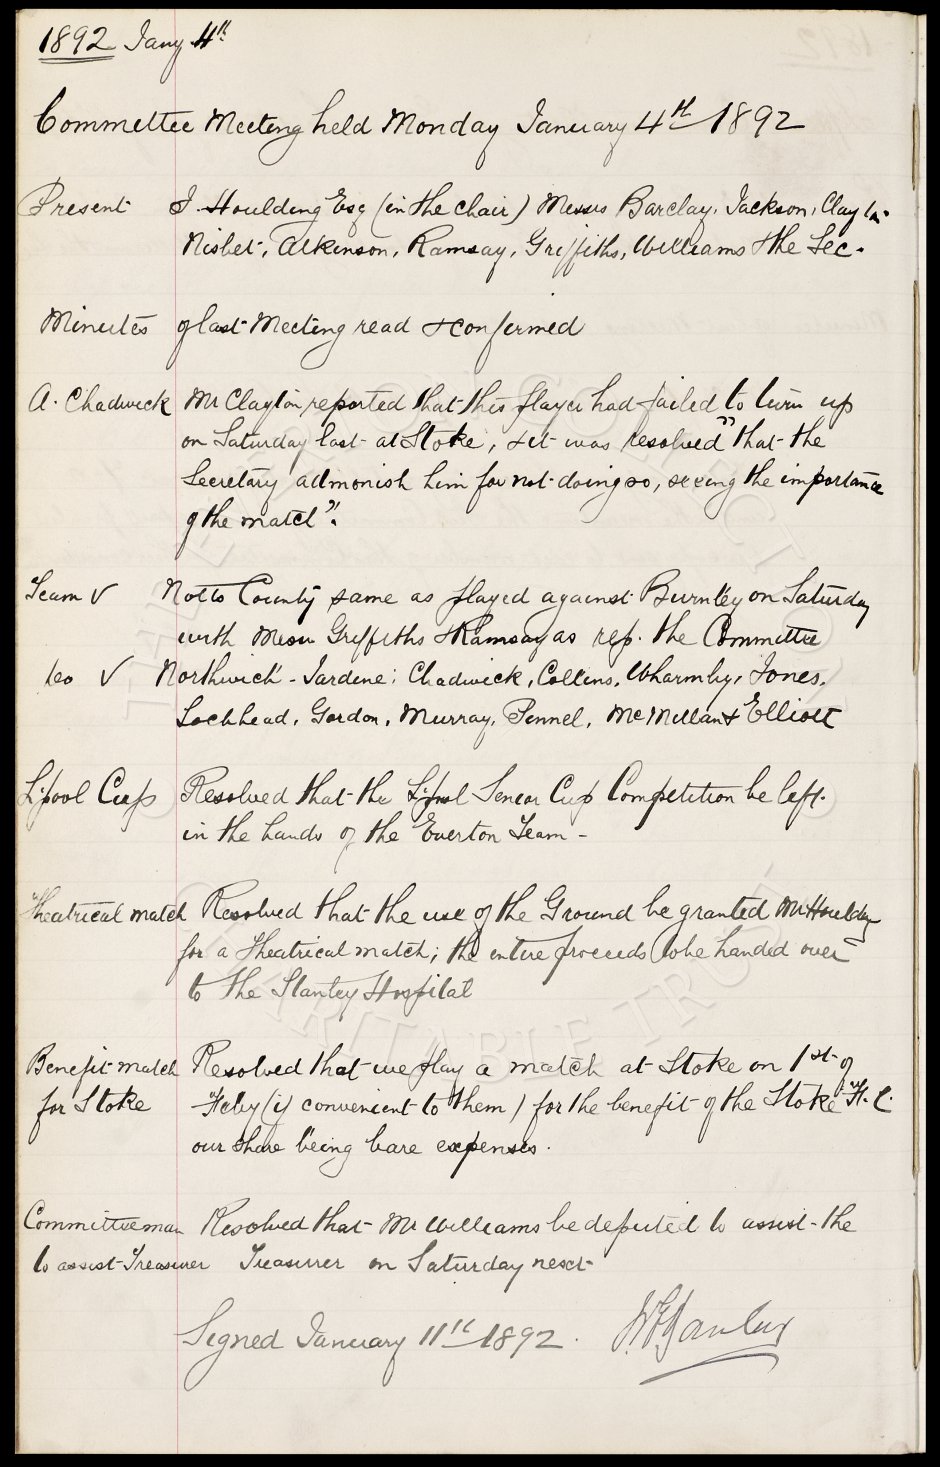 1892 Jany 4th
Committee Meeting held Monday January 4th 1892
Present J. Houlding Esq (in the chair) Messrs Barclay, Jackson, Clayton
Nisbet, Atkinson, Ramsay, Griffiths, Williams & the Sec.
Minutes of last Meeting read & confirmed
A. Chadwick Mr Clayton reported that this player had failed to turn up
on Saturday last at Stoke, & it was resolved "that the
Secretary admonish him for not doing so, seeing the importance
of the match".
Team v Notts County same as played against Burnley on Saturday
with Messrs Griffiths & Ramsay as rep. the Committee
Do v Northwich - Jardine; Chadwick, Collins, Wharmby, Jones,
Lochhead, Gordon, Murray, Pinnel, McMillan & Elliott
L'pool Cup Resolved that the L'pool Senior Cup Competition be left
in the hands of the Everton Team -
Theatrical match Resolved that the use of the Ground be granted Mr Houlding
for a Theatrical match; the entire proceeds to be handed over
to the Stanley Hospital
Benefit match Resolved that we play a match at Stoke on 1st of
for Stoke Feby (if convenient to them) for the benefit of the Stoke F. C.
our share being bare expenses.
Committeeman Resolved that Mr Williams be deputed to assist the
to assist Treasurer Treasurer on Saturday next
Signed January 11th 1892.
THE EVERTON COLLECTION
CHARITABLE TRUST